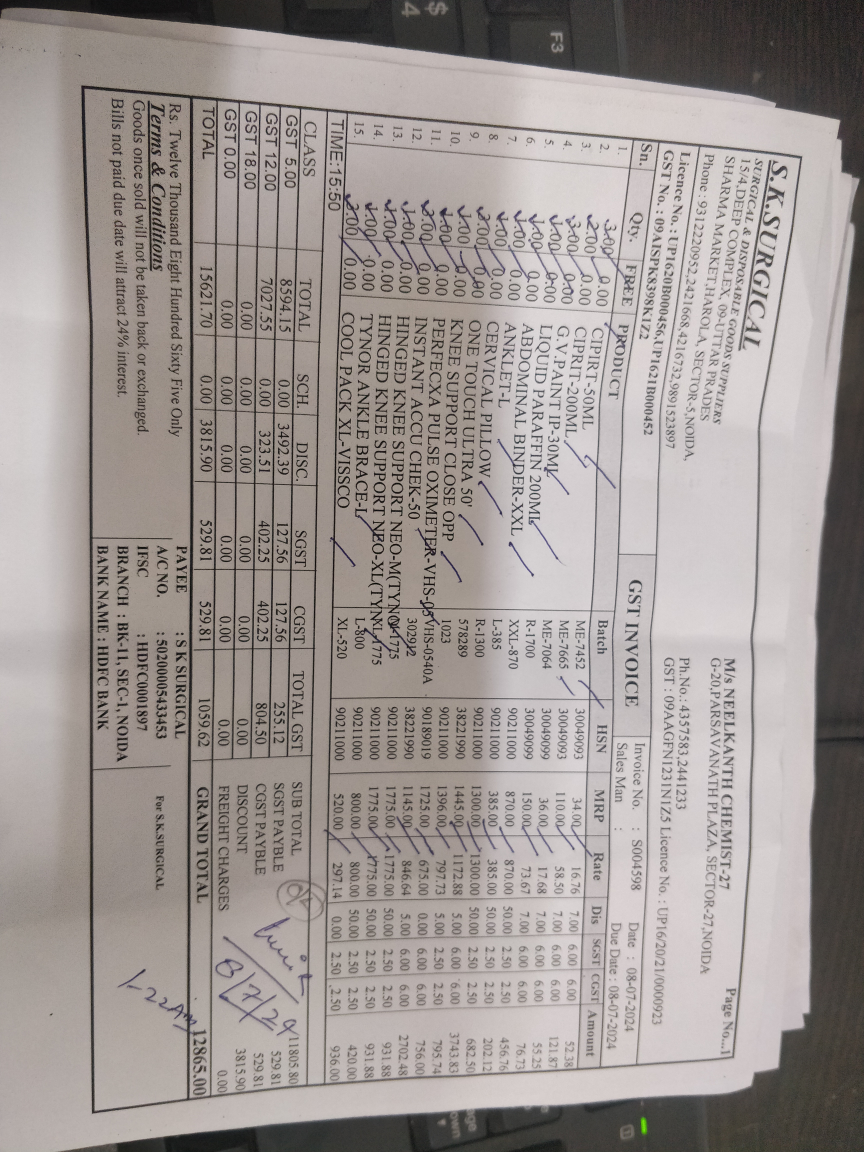 Page No...1
S.K.SURGICAL
SURGICAL & DISPOSABLE GOODS SUPPLIERS
15/4,DEEP COMPLEX, 09-UTTAR PRADES
SHARMA MARKET,HAROLA, SECTOR-5,NOIDA,
Phone :9312220952,2421668,4216732,9891523897
Licence No. : UP1620B000456,UP1621B000452
GST No. : 09AISPK8398K1Z2
M/s NEELKANTH CHEMIST-27
G-20,PARSAVANATH PLAZA, SECTOR-27,NOIDA
Ph.No.: 4357583,2441233
GST : 09AAGFN1231N1Z5 Licence No. : UP16/20/21/0000923
GST INVOICE
Invoice No. : S004598 Date : 08-07-2024
Sales Man : Due Date : 08-07-2024
Sn. Qty. FREE PRODUCT Batch HSN MRP Rate Dis SGST CGST Amount
1. 3.00 0.00 CIPIRIT-50ML ME-7452 30049093 34.00 16.76 7.00 6.00 6.00 52.38
2. 2.00 0.00 CIPRIT-200ML ME-7665 30049093 110.00 58.50 7.00 6.00 6.00 121.87
3. 3.00 0.00 G.V.PAINT IP-30ML ME-7064 30049099 36.00 17.68 7.00 6.00 6.00 55.25
4. 1.00 0.00 LIQUID PARAFFIN 200ML R-1700 30049099 150.00 73.67 7.00 6.00 6.00 76.73
5. 1.00 0.00 ABDOMINAL BINDER-XXL XXL-870 90211000 870.00 870.00 50.00 2.50 2.50 456.76
6. 1.00 0.00 ANKLET-L L-385 90211000 385.00 385.00 50.00 2.50 2.50 202.12
7. 1.00 0.00 CERVICAL PILLOW R-1300 90211000 1300.00 1300.00 50.00 2.50 2.50 682.50
8. 3.00 0.00 ONE TOUCH ULTRA 50' 578289 38221990 1445.00 1172.88 5.00 6.00 6.00 3743.83
9. 1.00 0.00 KNEE SUPPORT CLOSE OPP 1023 90211000 1396.00 797.73 5.00 2.50 2.50 795.74
10. 1.00 0.00 PERFECXA PULSE OXIMETER-VHS-05 VHS-0540A 90189019 1725.00 675.00 0.00 6.00 6.00 756.00
11. 3.00 0.00 INSTANT ACCU CHEK-50 302912 38221990 1145.00 846.64 5.00 6.00 6.00 2702.48
12. 1.00 0.00 HINGED KNEE SUPPORT NEO-M(TYNO M-1775 90211000 1775.00 1775.00 50.00 2.50 2.50 931.88
13. 1.00 0.00 HINGED KNEE SUPPORT NEO-XL(TYN XL-1775 90211000 1775.00 1775.00 50.00 2.50 2.50 931.88
14. 1.00 0.00 TYNOR ANKLE BRACE-L L-800 90211000 800.00 800.00 50.00 2.50 2.50 420.00
15. 3.00 0.00 COOL PACK XL-VISSCO XL-520 90211000 520.00 297.14 0.00 2.50 2.50 936.00
TIME:15:50
CLASS TOTAL SCH. DISC. SGST CGST TOTAL GST
GST 5.00 8594.15 0.00 3492.39 127.56 127.56 255.12
GST 12.00 7027.55 0.00 323.51 402.25 402.25 804.50
GST 18.00 0.00 0.00 0.00 0.00 0.00 0.00
GST 0.00 0.00 0.00 0.00 0.00
TOTAL 15621.70 0.00 3815.90 529.81 529.81 1059.62
SUB TOTAL 11805.80
SGST PAYBLE 529.81
CGST PAYBLE 529.81
DISCOUNT 3815.90
FREIGHT CHARGES 0.00
GRAND TOTAL 12865.00
8/7/24
Rs. Twelve Thousand Eight Hundred Sixty Five Only
Terms & Conditions
Goods once sold will not be taken back or exchanged.
Bills not paid due date will attract 24% interest.
PAYEE : S K SURGICAL
A/C NO. : 50200005433453
IFSC : HDFC0001897
BRANCH : BK-11, SEC-1, NOIDA
BANK NAME : HDFC BANK
For S.K.SURGICAL
F3
$
4